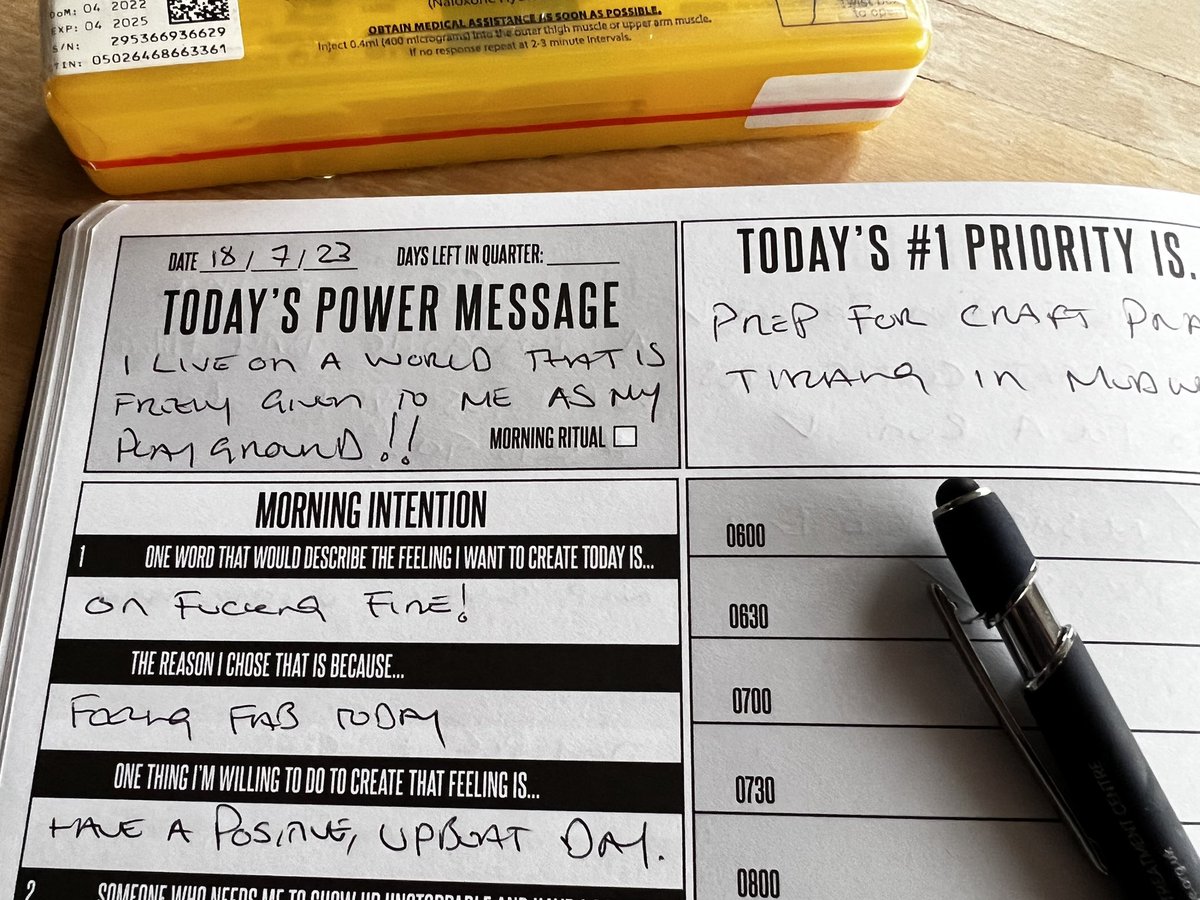 DoM: 04 2022
EXP: 04 2025
S/N: 295366936629
TIN: 05026468663361
OBTAIN MEDICAL ASSISTANCE AS SOON AS POSSIBLE.
Inject 0.4ml (400 micrograms) into the outer thigh muscle or upper arm muscle.
If no response repeat at 2-3 minute intervals.
to open
DATE 18/7/23 DAYS LEFT IN QUARTER:
TODAY'S POWER MESSAGE
I LIVE ON A WORLD THAT IS
FREELY GIVEN TO ME AS MY
PLAYGROUND!!
MORNING RITUAL
TODAY'S #1 PRIORITY IS.
PREP FOR CRAFT
IN
MORNING INTENTION
1 ONE WORD THAT WOULD DESCRIBE THE FEELING I WANT TO CREATE TODAY IS...
ON FUCKING FIRE!
THE REASON I CHOSE THAT IS BECAUSE...
FEELING FAB TODAY
ONE THING I'M WILLING TO DO TO CREATE THAT FEELING IS...
HAVE A POSITIVE, UPBEAT DAY.
2 SOMEONE WHO NEEDS ME TO SHOW UP UNSTOPPABLE AND
0600
0630
0700
0730
0800